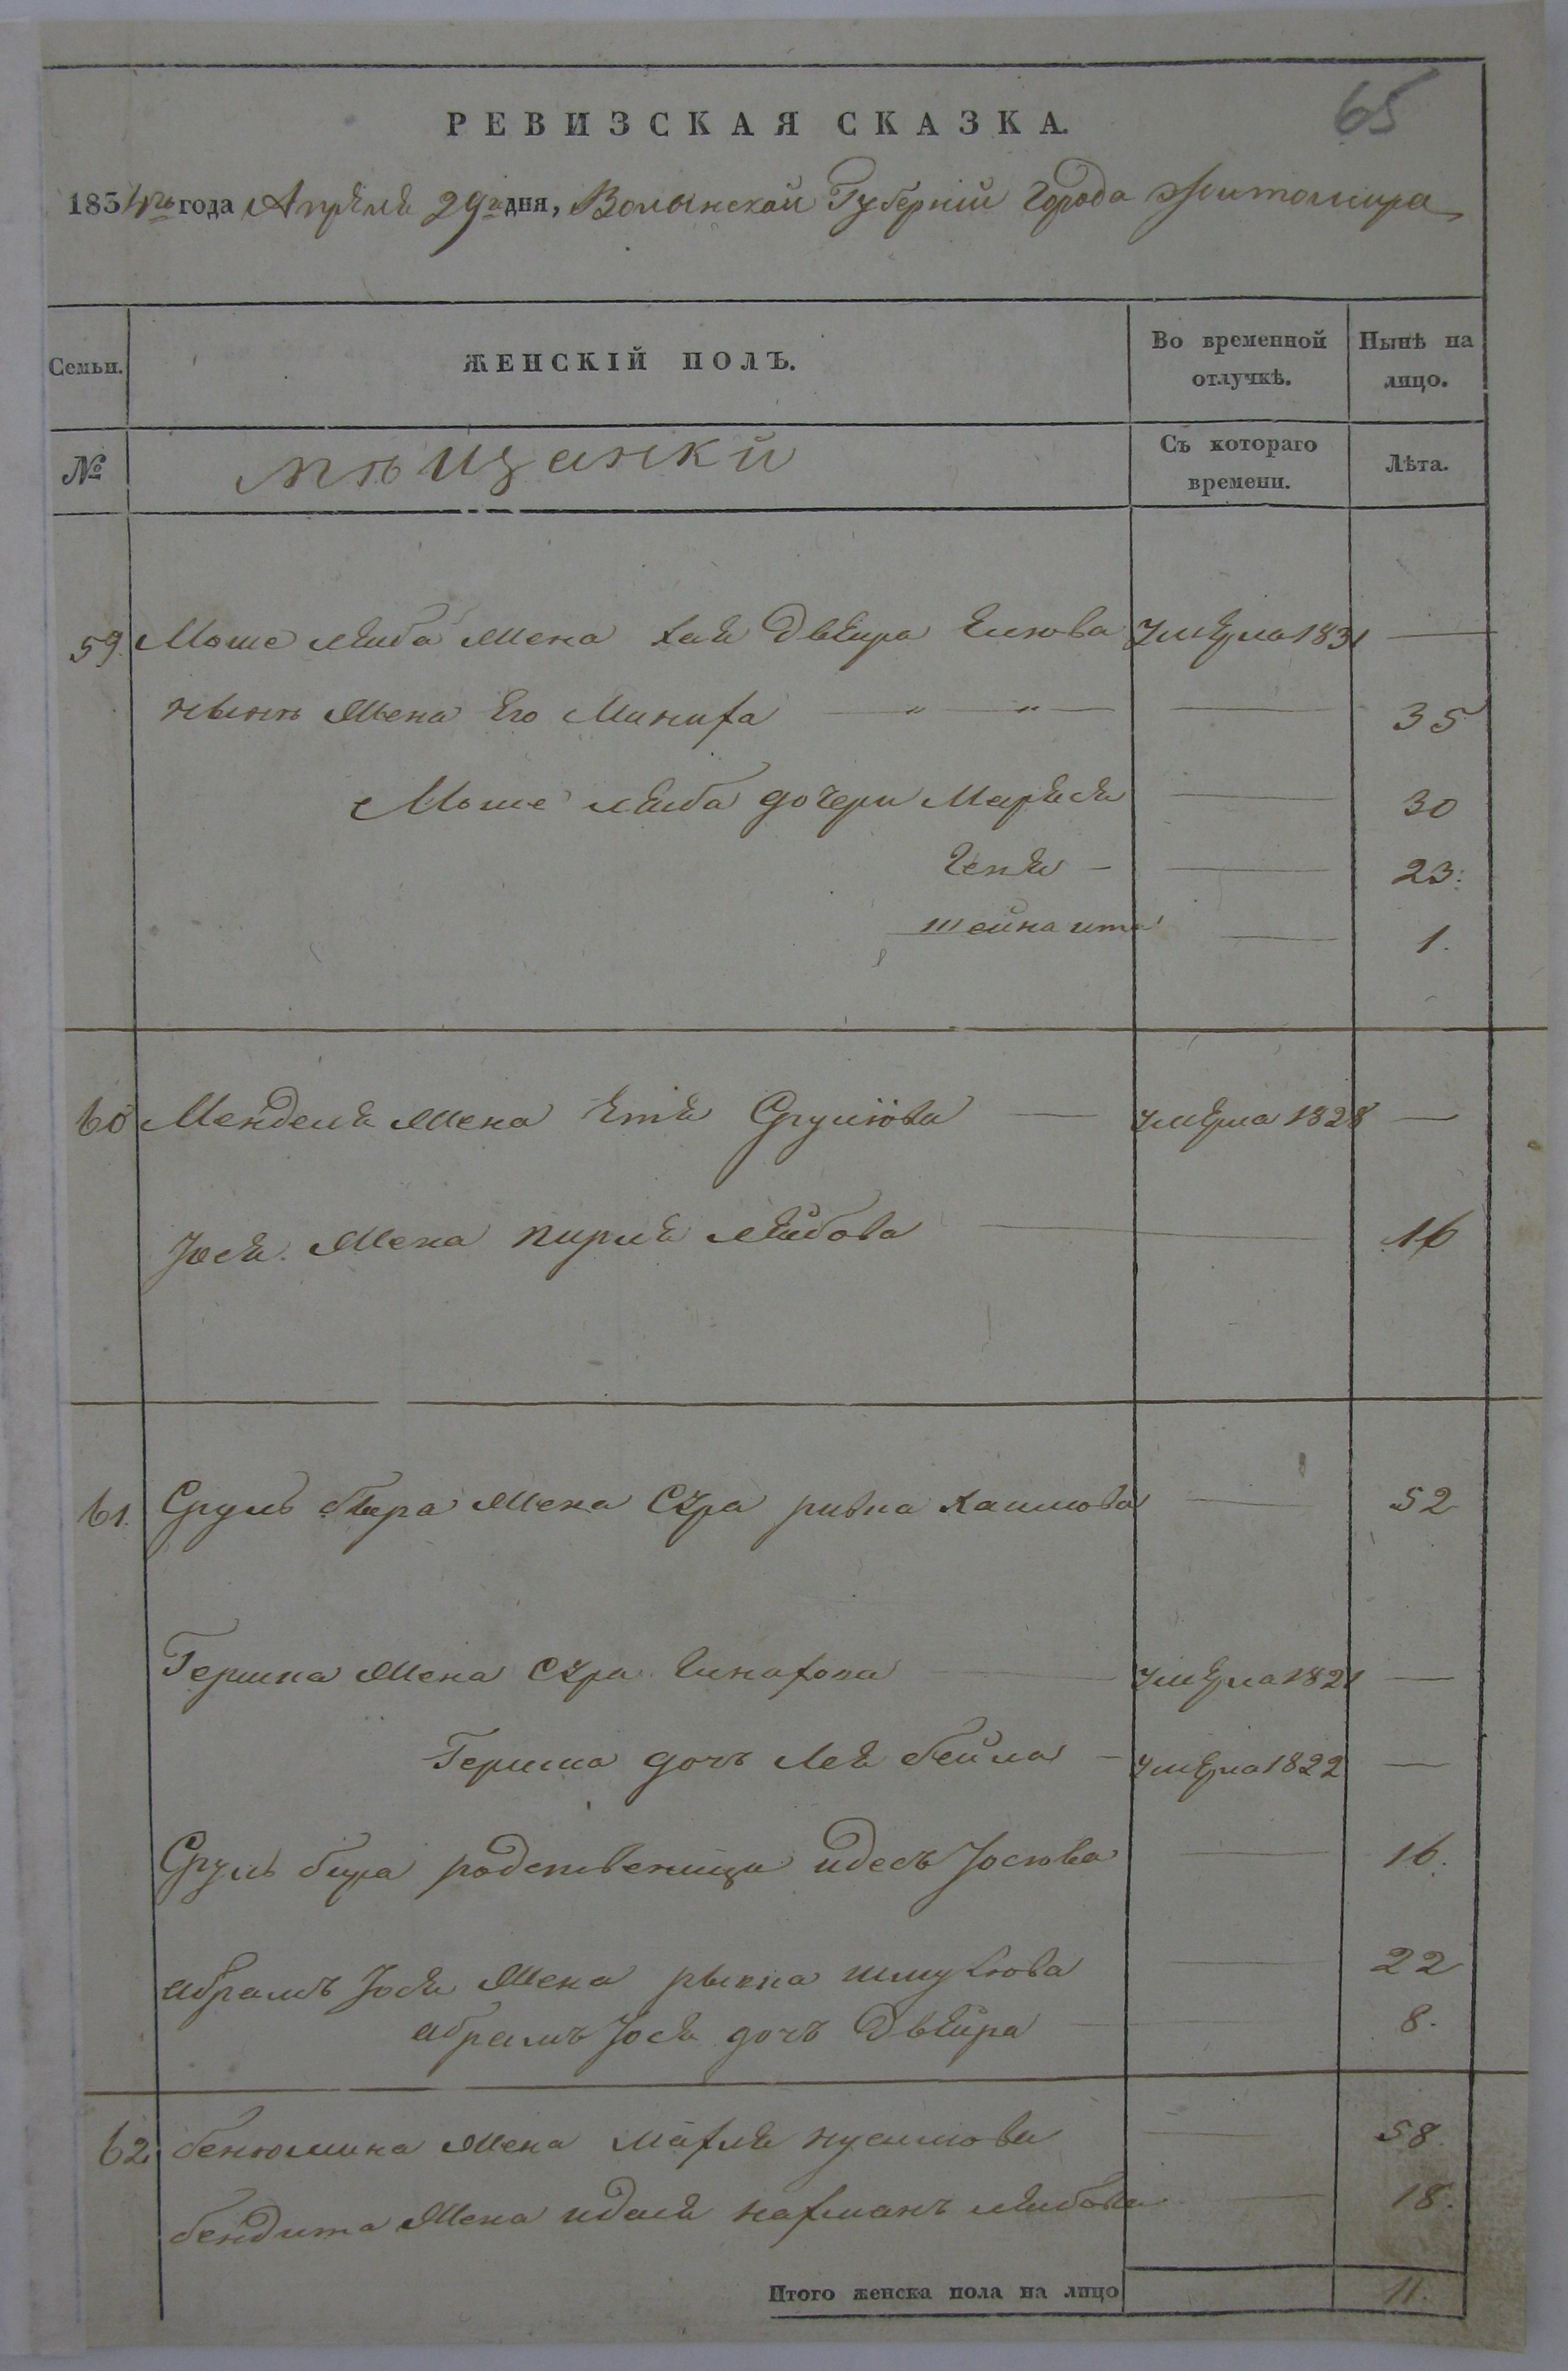 65
РЕВИЗСКАЯ СКАЗКА.
1834го года Апреля 29го дня, Волынской Губернии Города Житомира
Семьи. ЖЕНСКІЙ ПОЛЪ. Во временной отлучкѣ. Нынѣ на лицо.
№ мѣщанки Съ котораго времени. Лѣта.
59. Мошe леиба жена хая двеира умерла 1831 —
нынѣ жена его Миниха — " — " — — 35
Мошe леиба дочери Маряся — 30
Геня — — 23.
шейна ита — 1.
60 Менделя жена етя Срулiова — умерла 1828 —
Jося жена пирля лейбова — 16
61. Сруль бера жена Сура ривка хаимова — 52
Гершка жена Сура — умерла 1821 —
Гершка дочь Лея бейла — умерла 1822 —
Сруль бера родственица идесь Jосiова — 16.
абрамъ Jося жена рыкла шмулiова — 22
абрамъ Jося дочь двейра — 8.
62. бенюмина жена махля нусимова — 58.
бендита жена идля нахманъ леибова — 18.
Итого женска пола на лицо 11.